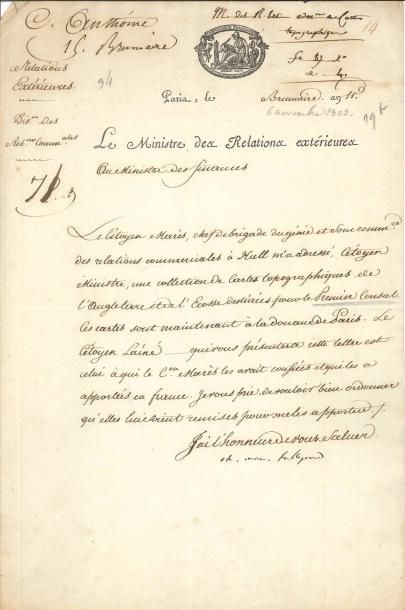 C. Anthoine
15. Brumaire
M. des R. Ext
topographiques
14
Relations
Extérieures.
94
Paris, le Brumaire an 11.
6 novembre 1802.
Div. on des
Rel. ons Comm. ales
Le Ministre des Relations extérieures
Au Ministre des finances
Le Citoyen Marès, chef de brigade du génie et Sous comm.re
des relations commerciales à Hull m'a adressé, Citoyen
Ministre, une collection de Cartes topographiques de
l'Angleterre et de l'Ecosse destinées pour le Premier Consul.
Ces cartes sont maintenant à la douane de Paris. Le
Citoyen Lainé qui vous présentera cette lettre est
celui à qui le C.en Marès les avait confiées et qui les a
apportées en france. Je vous prie de vouloir bien ordonner
qu'elles lui soient remises pour me les apporter.
J'ai l'honneur de vous Saluer
ch. mau. talleyrand